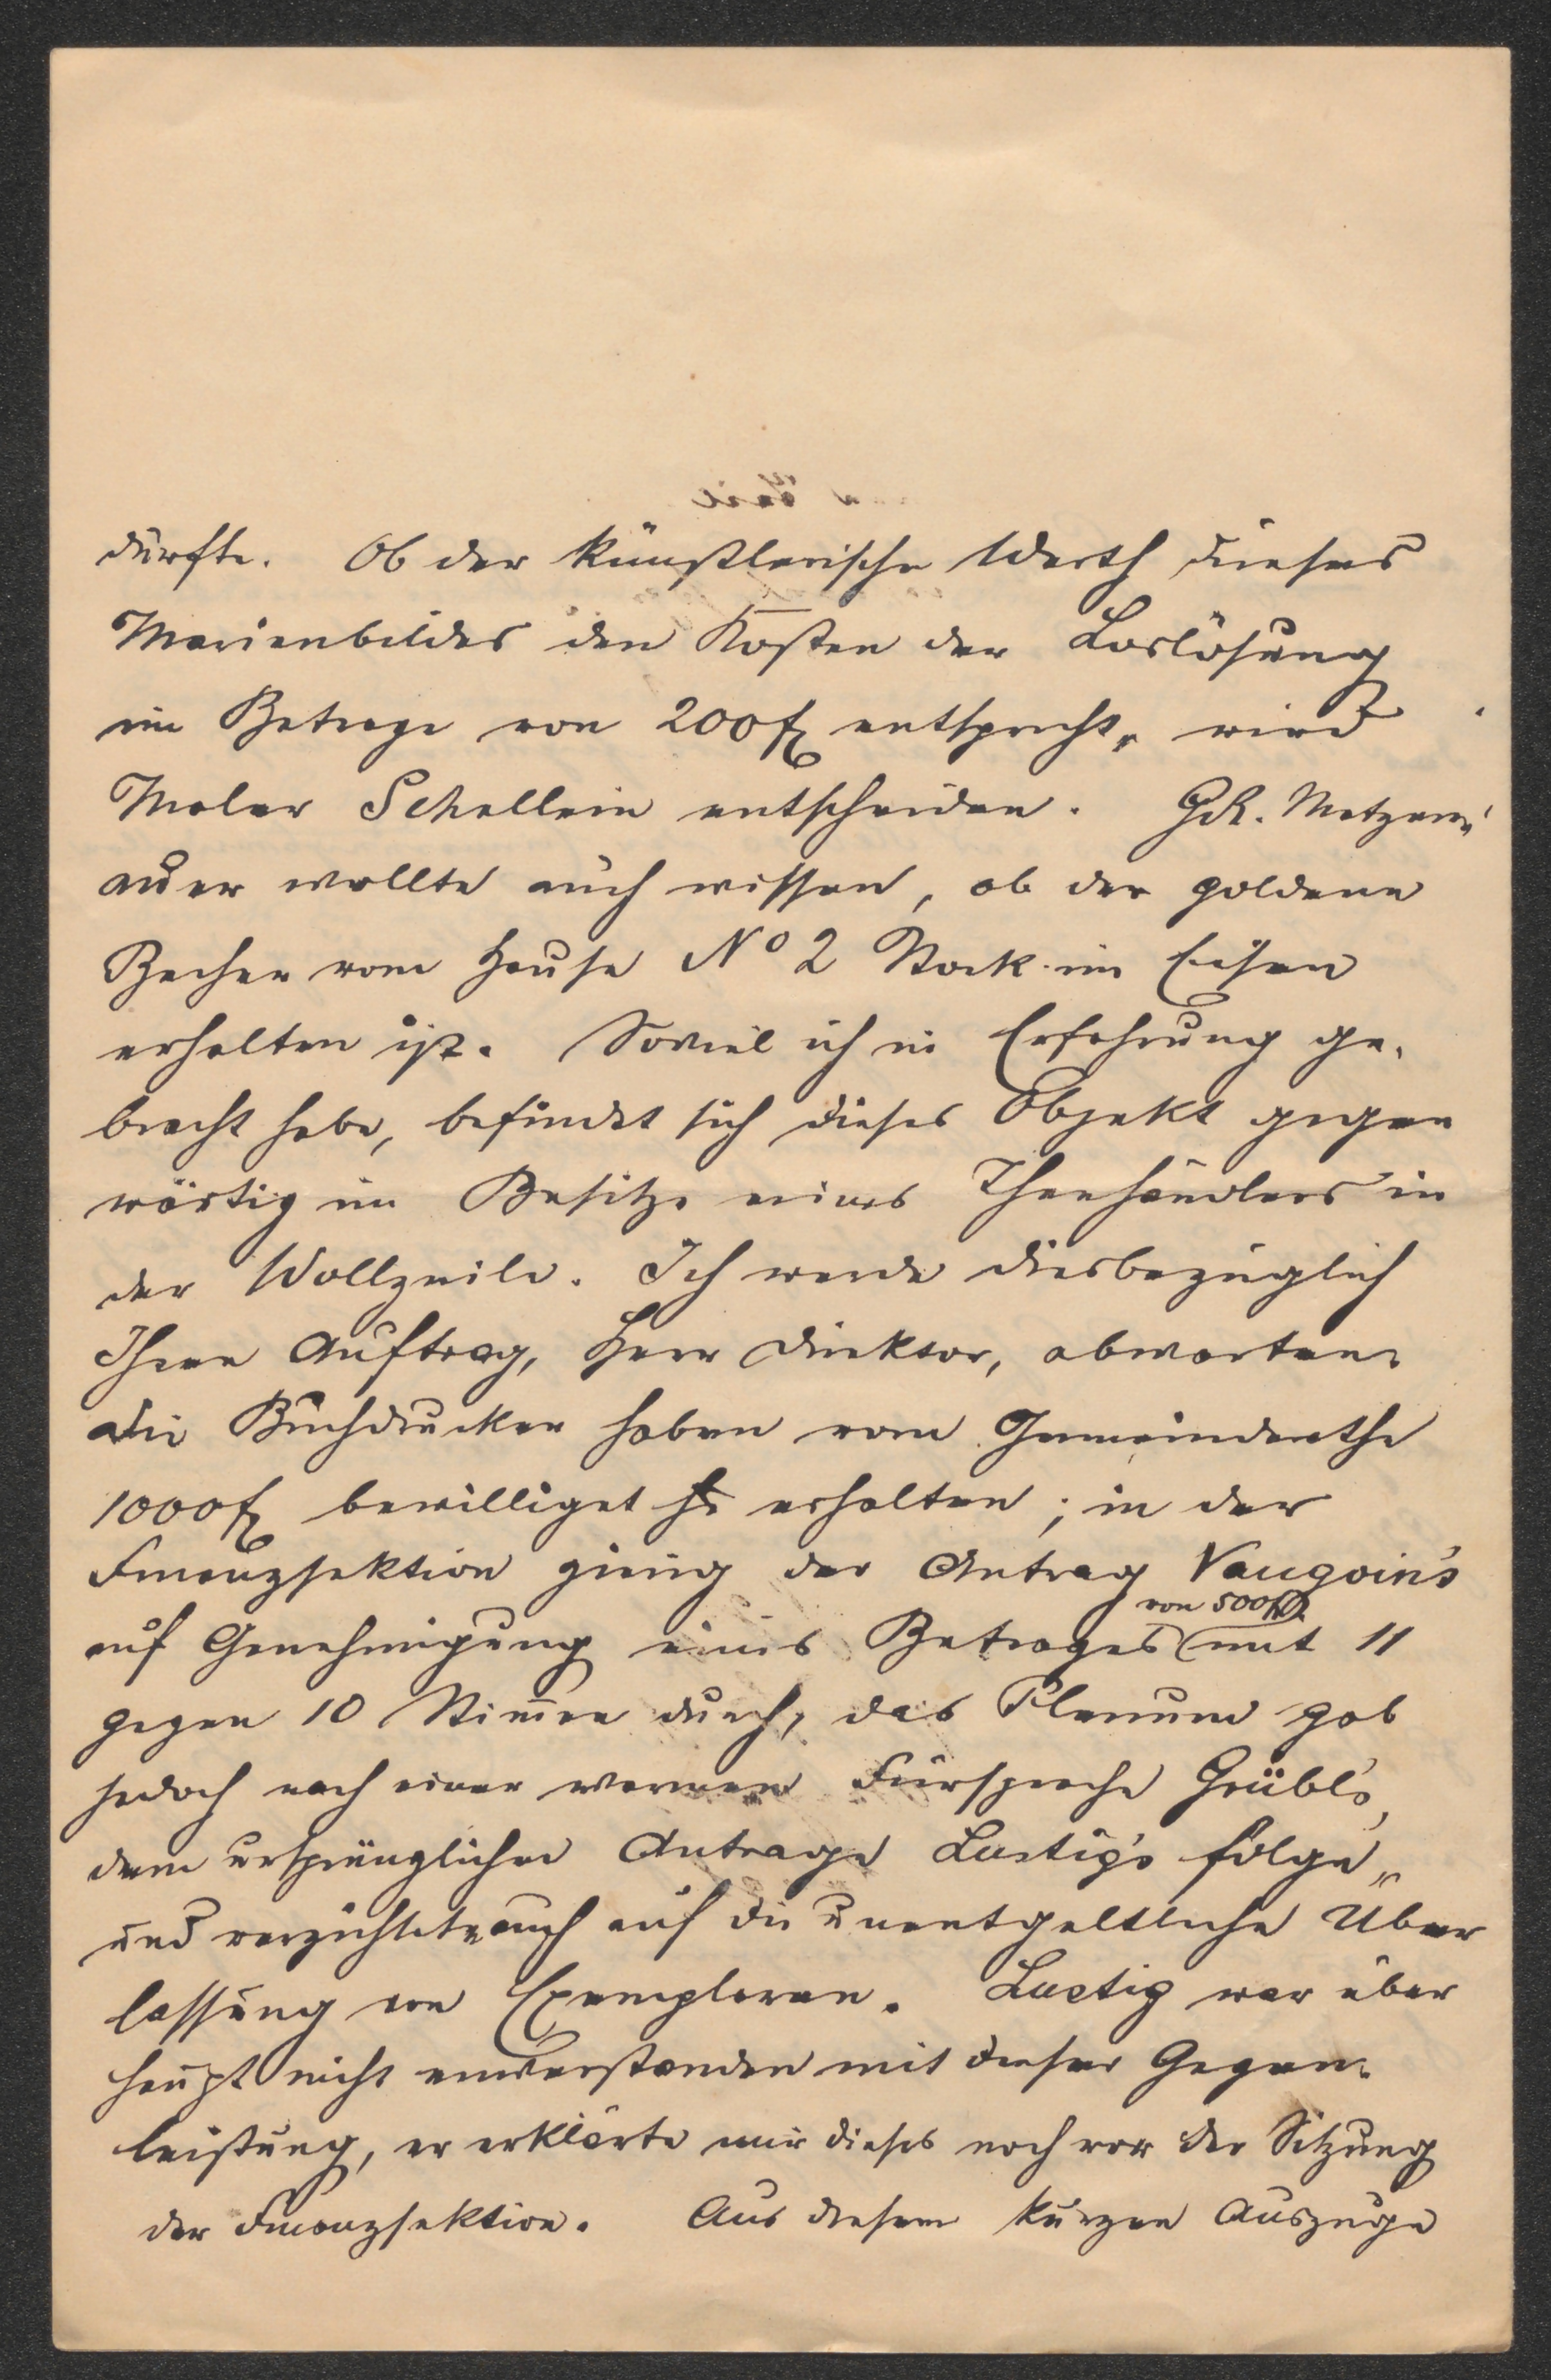 dürfte. Ob der künstlerische Werth dieses
Marienbildes den Kosten der Loslösung
im Betrage von 200 fl entspricht, wird
Maler Schellein entscheiden. GR. Matzen-
auer wollte auch wissen, ob der goldene
Becher vom Hause No 2 Stock im Eisen
erhalten ist. Soviel ich in Erfahrung ge-
bracht habe, befindet sich dieses Objekt gegen
wärtig im Besitze eines Theehändlers in
der Wollzeile. Ich werde diesbezüglich
Ihren Auftrag, Herr Direktor, abwarten.
Die Buchdrucker haben vom Gemeinderathe
1000 fl bewilliget erhalten; in der
Finanzsektion gieng der Antrag Vaugoin's
von 500 fl
auf Genehmigung eines Betrages mit 11
gegen 10 Stimen durch, das Plenum gab
jedoch nach einer warmen Fürsprache Grübl's,
dem ursprünglichen Antrage Lustig's folge,
und verzichtete auch auf die unentgeltliche Über
lassung von Exemplaren. Lustig war über
haupt nicht einverstanden mit dieser Gegen-
leistung, er erklärte mir dieses noch vor der Sitzung
der Finanzsektion. Aus diesem kurzen Auszuge